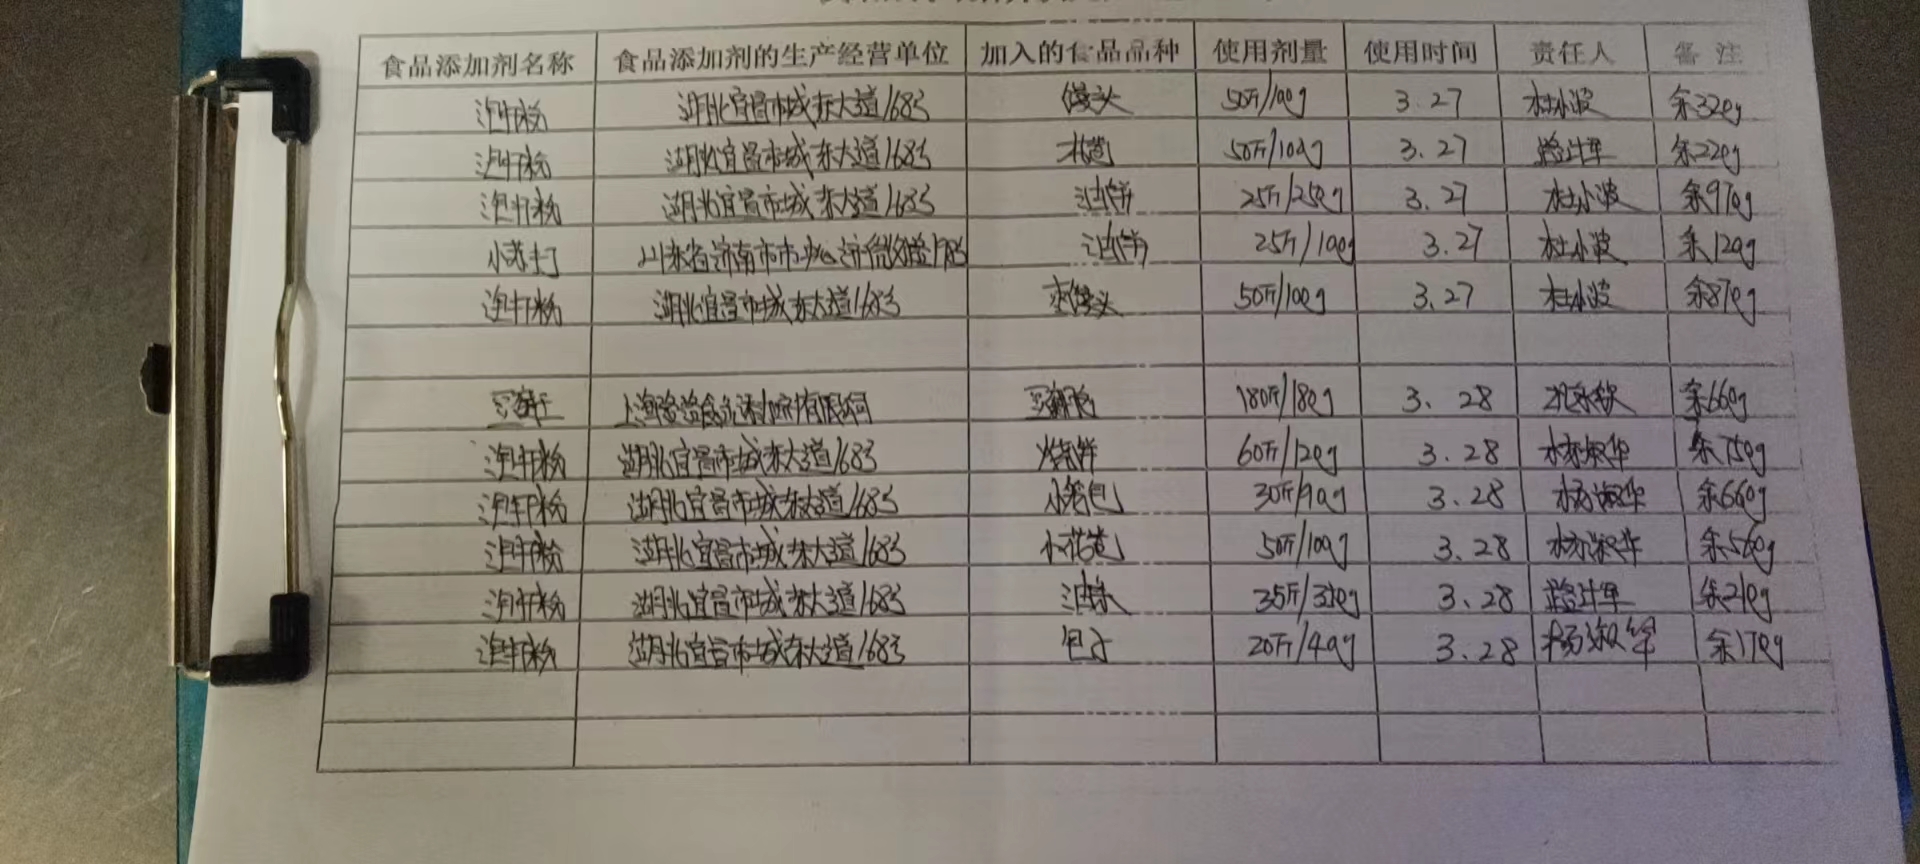 食品添加剂名称 食品添加剂的生产经营单位 加入的食品品种 使用剂量 使用时间 责任人 备注
泡打粉 湖北宜昌市城东大道168号 馒头 50斤/100g 3.27 杜小波 余320g
泡打粉 湖北宜昌市城东大道168号 花卷 50斤/100g 3.27 余220g
泡打粉 湖北宜昌市城东大道168号 油饼 25斤/250g 3.27 杜小波 余970g
小苏打 山东省济南市市中心 油饼 25斤/100g 3.27 杜小波 余120g
泡打粉 湖北宜昌市城东大道168号 枣馒头 50斤/100g 3.27 杜小波 余870g
上海 食品添加剂有限公司 180斤/180g 3.28 余660g
泡打粉 湖北宜昌市城东大道168号 烧饼 60斤/120g 3.28 杨淑华 余750g
泡打粉 湖北宜昌市城东大道168号 小笼包 30斤/90g 3.28 杨淑华 余660g
泡打粉 湖北宜昌市城东大道168号 小花卷 50斤/100g 3.28 杨淑华 余560g
泡打粉 湖北宜昌市城东大道168号 油条 35斤/350g 3.28 余210g
泡打粉 湖北宜昌市城东大道168号 包子 20斤/40g 3.28 杨淑华 余170g